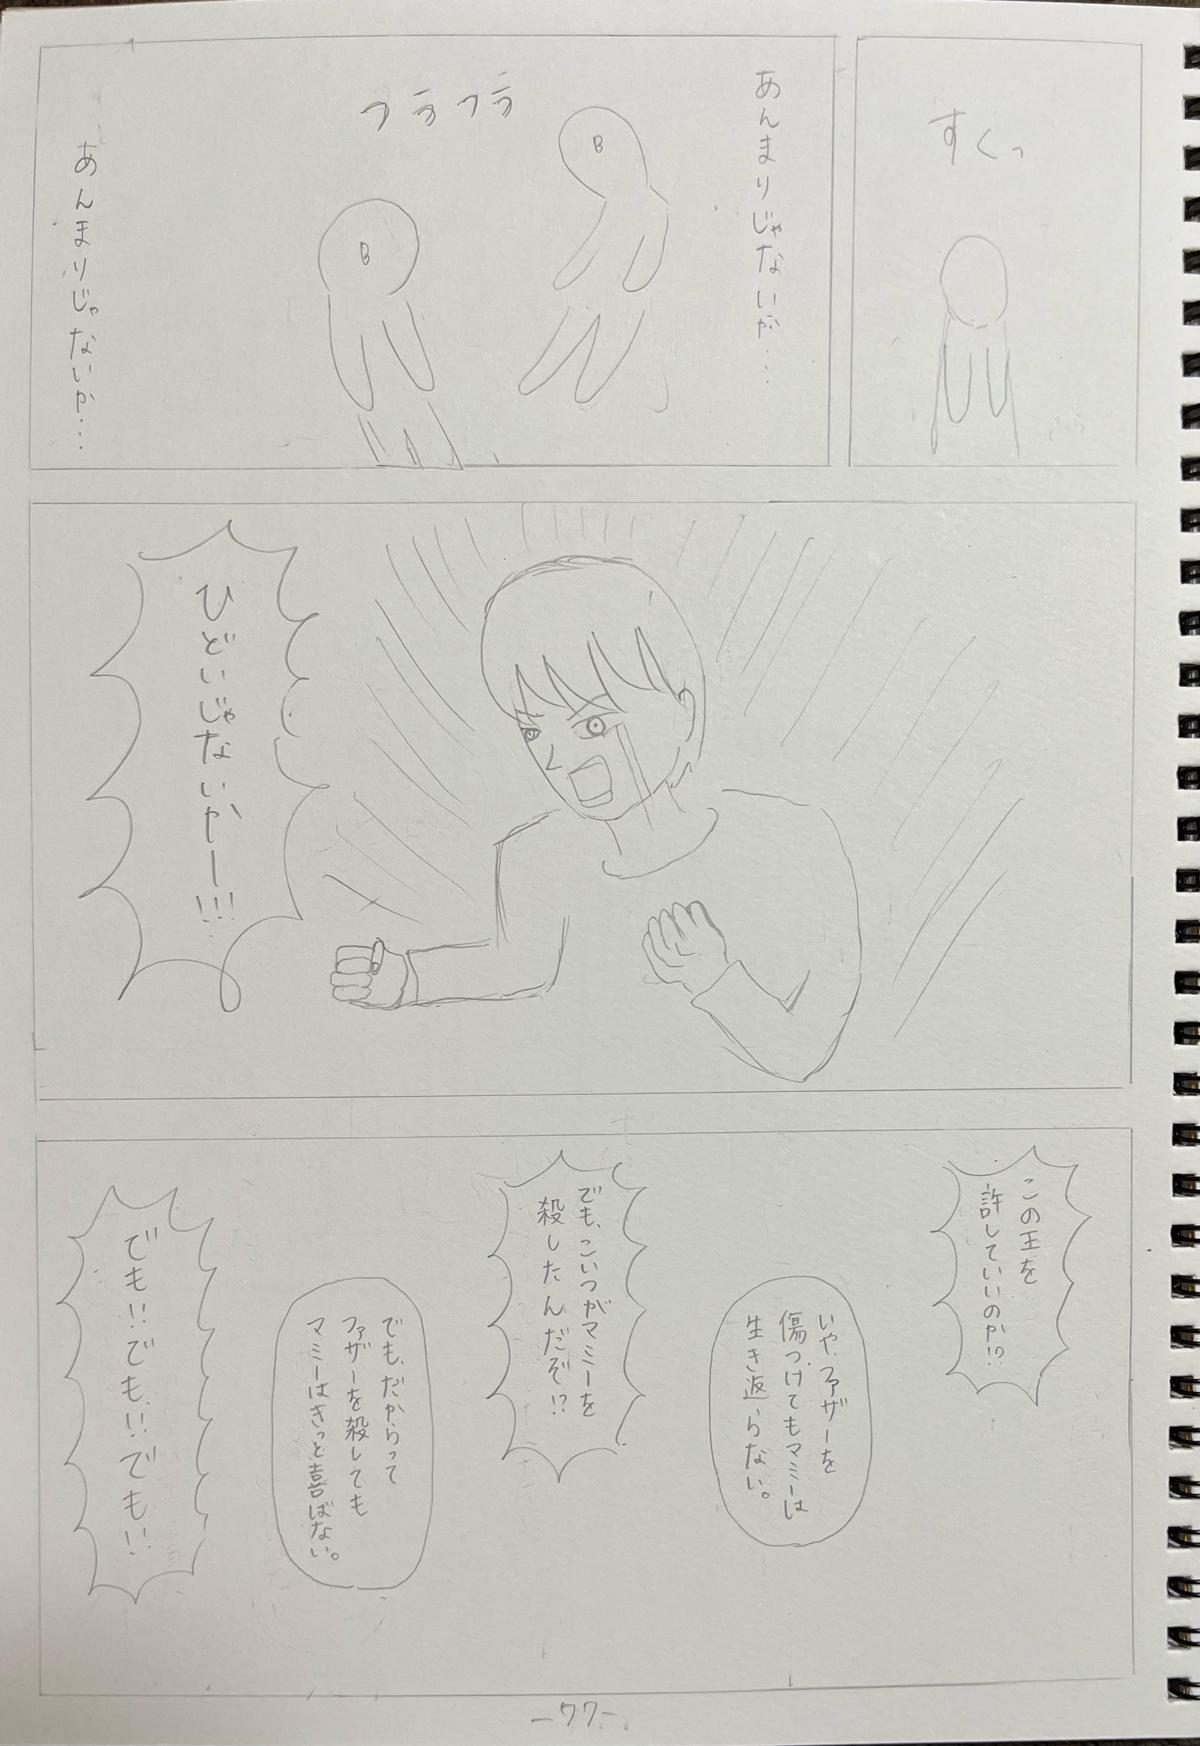 すくっ
あんまりじゃないか…
B
フラフラ
B
あんまりじゃないか…
ひどいじゃないかー!!!
この王を
許していいのか!?
いや、ファザーを
傷つけてもマミーは
生き返らない。
でも、こいつがマミーを
殺したんだぞ!?
でも、だからって
ファザーを殺しても
マミーはきっと喜ばない。
でも!!でも!!でも!!
-77-